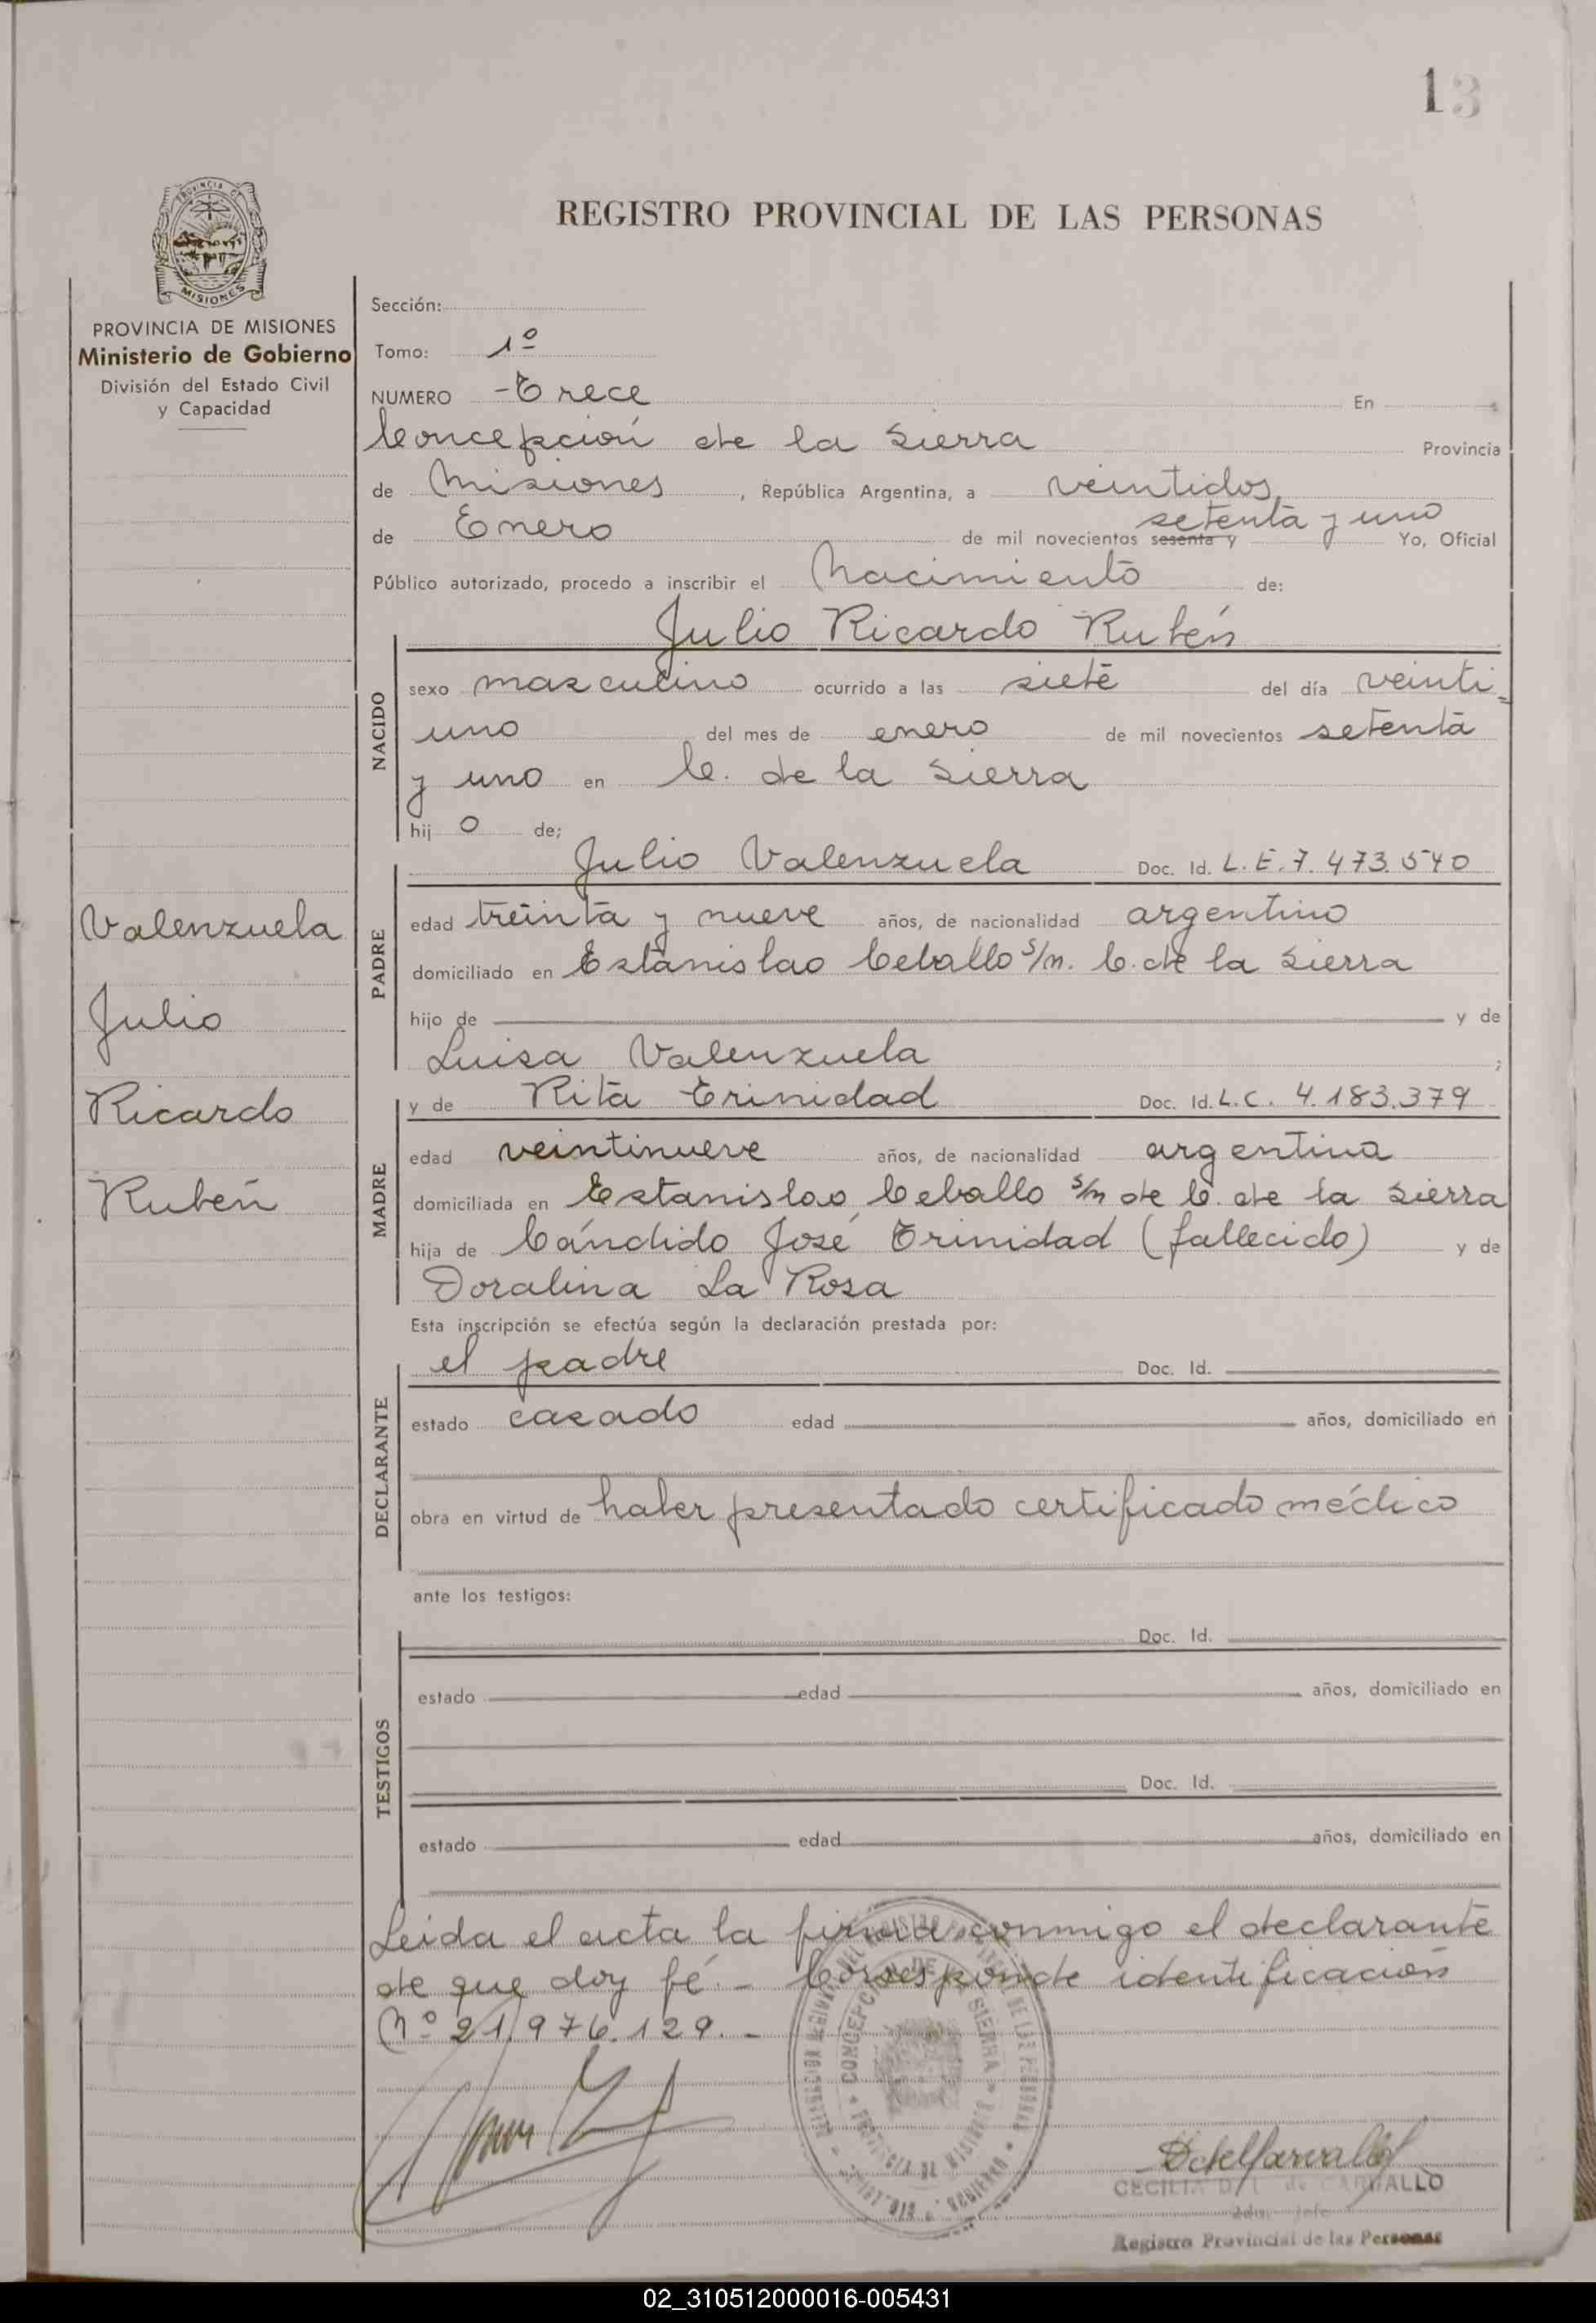 13
PROVINCIA DE
MISIONES
REGISTRO PROVINCIAL DE LAS PERSONAS
PROVINCIA DE MISIONES
Ministerio de Gobierno
División del Estado Civil
y Capacidad
Valenzuela
Julio
Ricardo
Rubén
Sección:
Tomo: 1º
NUMERO - Trece En
Concepción de la Sierra Provincia
de Misiones, República Argentina, a veintidos
de Enero de mil novecientos sesenta y setenta y uno Yo, Oficial
Público autorizado, procedo a inscribir el Nacimiento de:
Julio Ricardo Rubén
NACIDO
sexo masculino ocurrido a las siete del día veinti=
uno del mes de enero de mil novecientos setenta
y uno en C. de la Sierra
hij o de;
Julio Valenzuela Doc. Id. L.E. 7.473.540
PADRE
edad treinta y nueve años, de nacionalidad argentino
domiciliado en Estanislao Ceballo s/n. C. de la Sierra
hijo de y de
Luisa Valenzuela ;
y de Rita Trinidad Doc. Id. L.C. 4.183.379
MADRE
edad veintinueve años, de nacionalidad argentina
domiciliada en Estanislao Ceballo s/n de C. de la Sierra
hija de Cándido José Trinidad (fallecido) y de
Doralina La Rosa
Esta inscripción se efectúa según la declaración prestada por:
el padre Doc. Id.
DECLARANTE
estado casado edad años, domiciliado en
obra en virtud de haber presentado certificado médico
ante los testigos:
Doc. Id.
TESTIGOS
estado edad años, domiciliado en
Doc. Id.
estado edad años, domiciliado en
Leída el acta la firma conmigo el declarante
de que doy fé. - Corresponde identificación
Nº 21.976.129. -
CONCEPCION DE LA SIERRA
PROVINCIA DE MISIONES
CECILIA D. de CARBALLO
Registro Provincial de las Personas
02_310512000016-005431